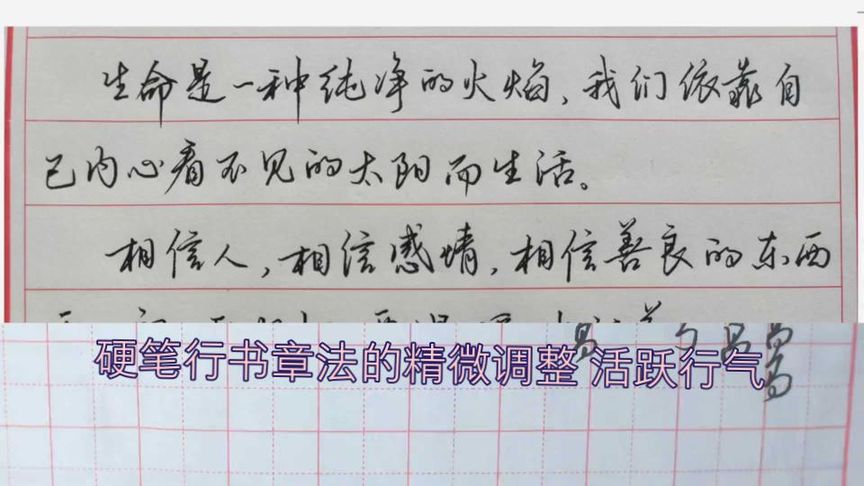 生命是一种纯净的火焰、我们依靠自
己内心看不见的太阳而生活。
相信人，相信感情，相信善良的东西
硬笔行书章法的精微调整 活跃行气